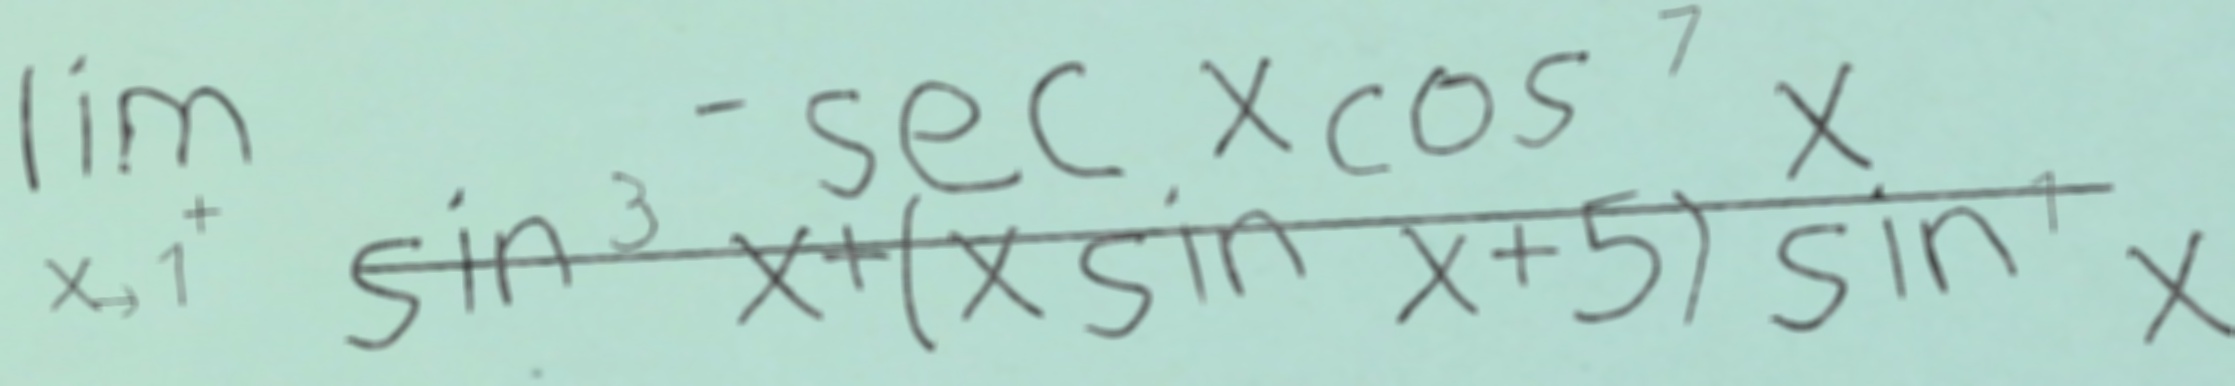 \lim_{x \to 1^+} \frac{-\sec x \cos^7 x}{\sin^3 x + (x \sin x + 5) \sin^1 x}